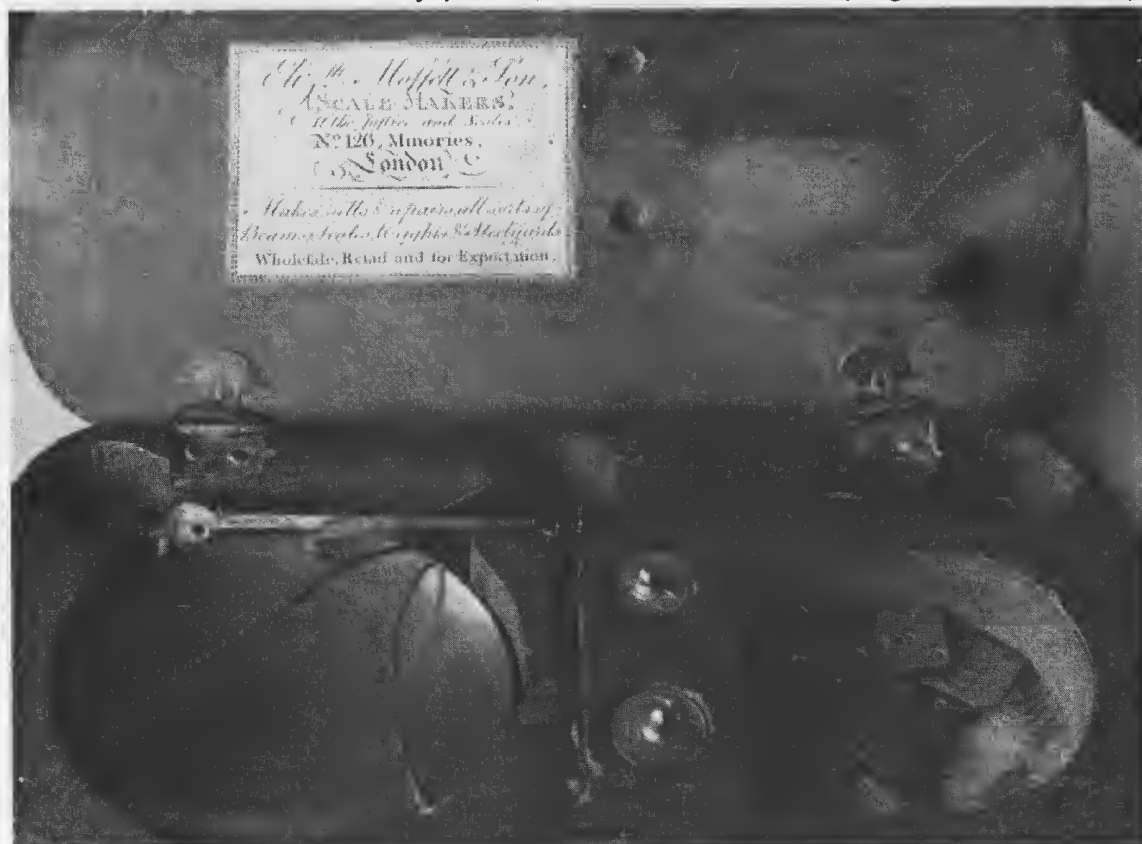 Eliz.th Moffett & Son,
SCALE MAKERS,
At the Justice and Scales
No. 126, Minories,
London
Makes, sells & repairs, all sorts of
Beams, Scales, Weights & Steelyards
Wholesale, Retail and for Exportation.